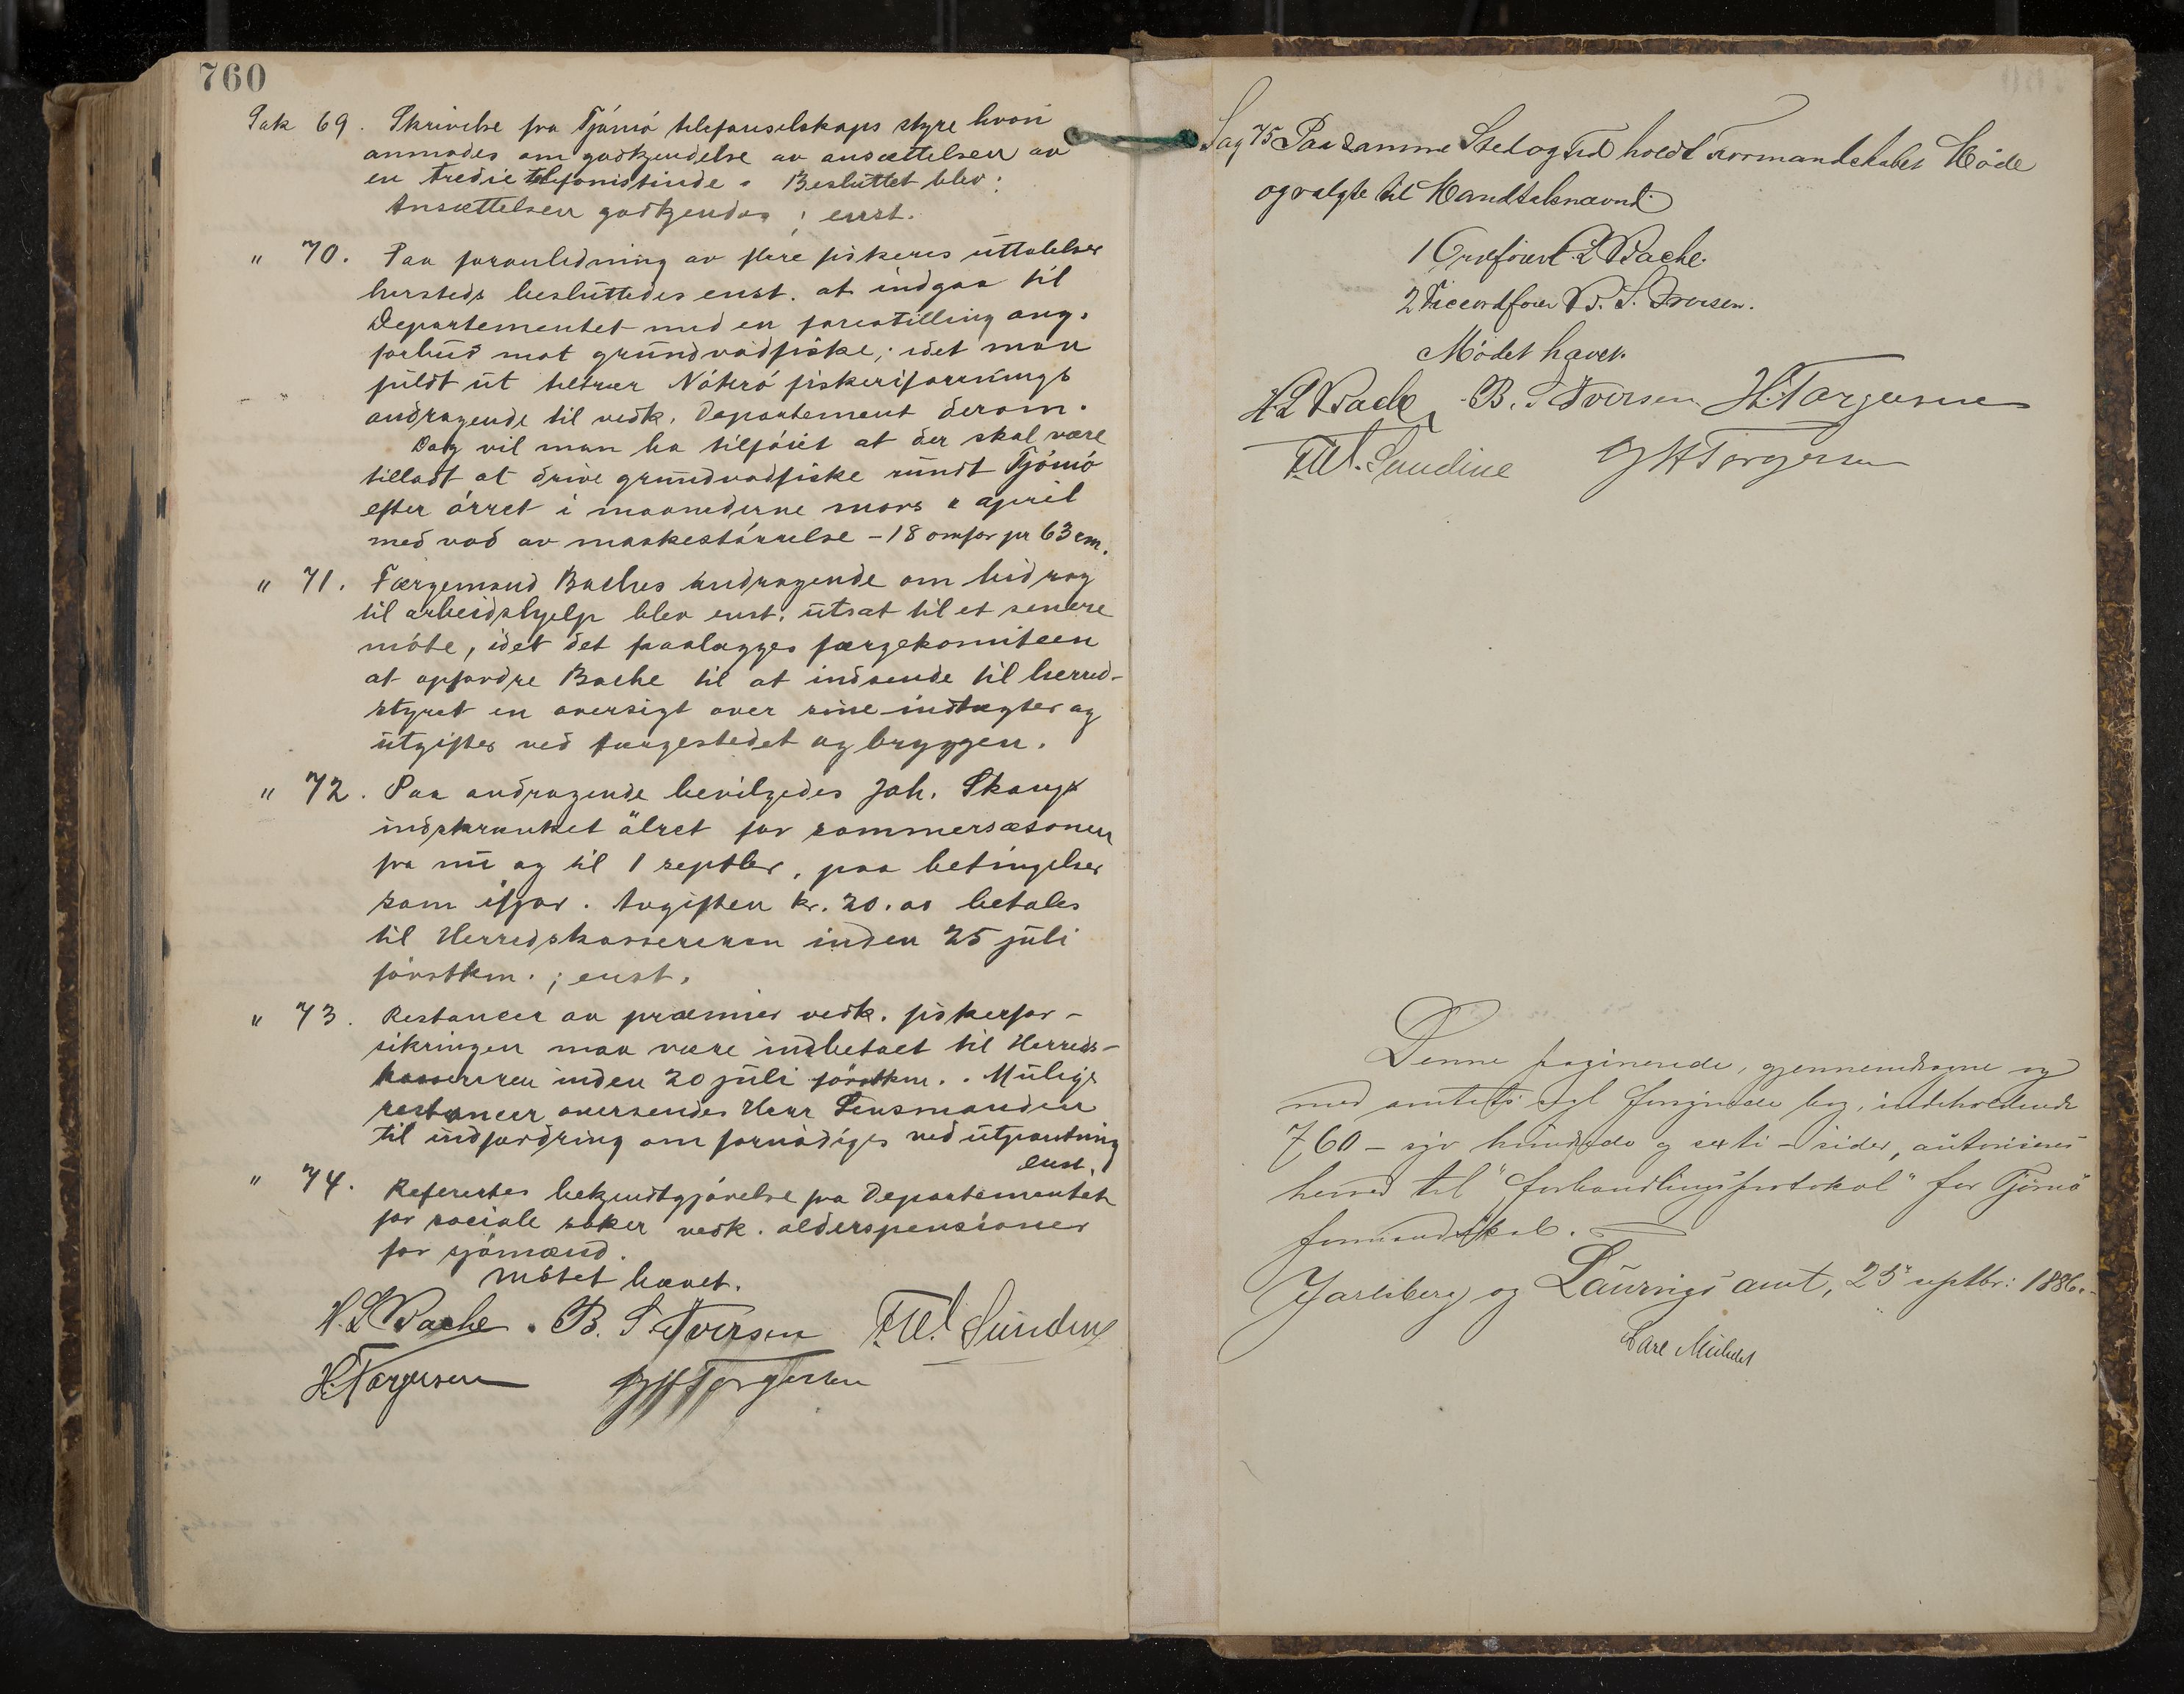 760
Sak 69. Skrivelse fra Tjømø telefonselskaps styre hvori
anmodes om godkjendelse av ansættelsen av
en tredie telefonistinde. Besluttet blev:
Ansættelsen godkjendes; enst.
" 70. Paa foranledning av flere fiskeres uttalelser
hersteds besluttedes enst. at indgaa til
Departementet med en forestilling ang.
forbud mot grundvadfiske; idet man
fuldt ut tiltrær Nøterø fiskeriforenings
andragende til vedk. Departement derom.
Dog vil man ha tilføiet at der skal være
tilladt at drive grundvadfiske rundt Tjømø
efter ørret i maanederne mars & april
med vad av maskestørrelse - 18 omfar pr 63 cm.
" 71. Færgemand Baches andragende om bidrag
til arbeidshjelp blev enst. utsat til et senere
møte, idet det paalægges færgekomiteen
at opfordre Bache til at indsende til herred-
styret en oversigt over sine indtægter og
utgifter ved færgestedet og bryggen.
" 72. Paa andragende bevilgedes Joh. Skaug
indskrænket ølret for sommersæsonen
fra nu og til 1 septbr, paa betingelser
som ifjor. Avgiften kr. 20.00 betales
til Herredskassereren inden 25 juli
førstkm.; enst.
" 73. Restancer av præmier vedk. fiskerfor-
sikringen maa være indbetalt til Herreds-
kassereren inden 20 juli førstkm.. Mulige
restancer oversendes Herr Lensmanden
til indfordring om fornødiges ved utpantning
enst.
" 74. Refereertes bekjendtgjørelse fra Departementet
for sociale saker vedk. alderspensioner
for sjømænd.
Møtet hævet.
H. L Bache. B. S Iversen F. W. Sundene
H. Torgersen H Torgersen
Sag 75 Paa samme Sted og tid holdt Formandskabet Møde
og valgte til Mandtalsnævnd
1 Ordfører L Bache.
2 Viceordfører B. S. Iversen.
Mødet hævet.
H. L Bache, B. S Iversen H. Torgersen
F. W. Sundene H Torgersen
Denne paginerede, gjennemdragne og
med amtets segl forsynede bog, indeholdende
760 - syv hundrede og sexti - sider, autoriseres
herved til "forhandlingsprotokol" for Tjømø
formandskab.
Jarlsberg og Laurvigs amt, 25 septbr: 1886.
Carl